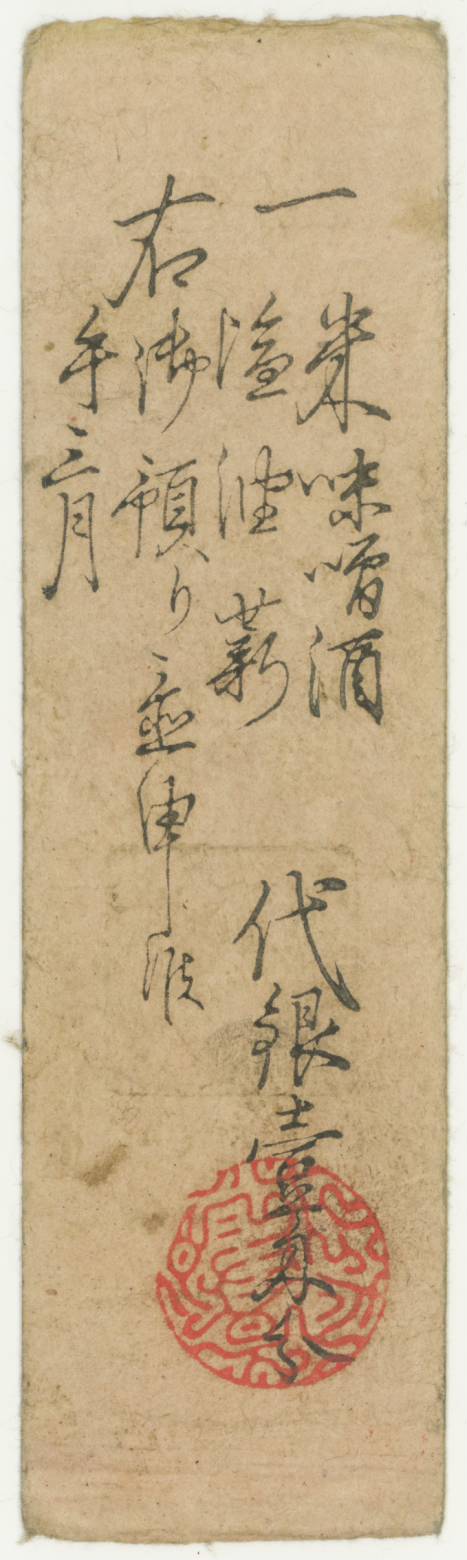 一 米味噌酒
塩油薪
代銀壹匁分
右御預り立申候
午三月